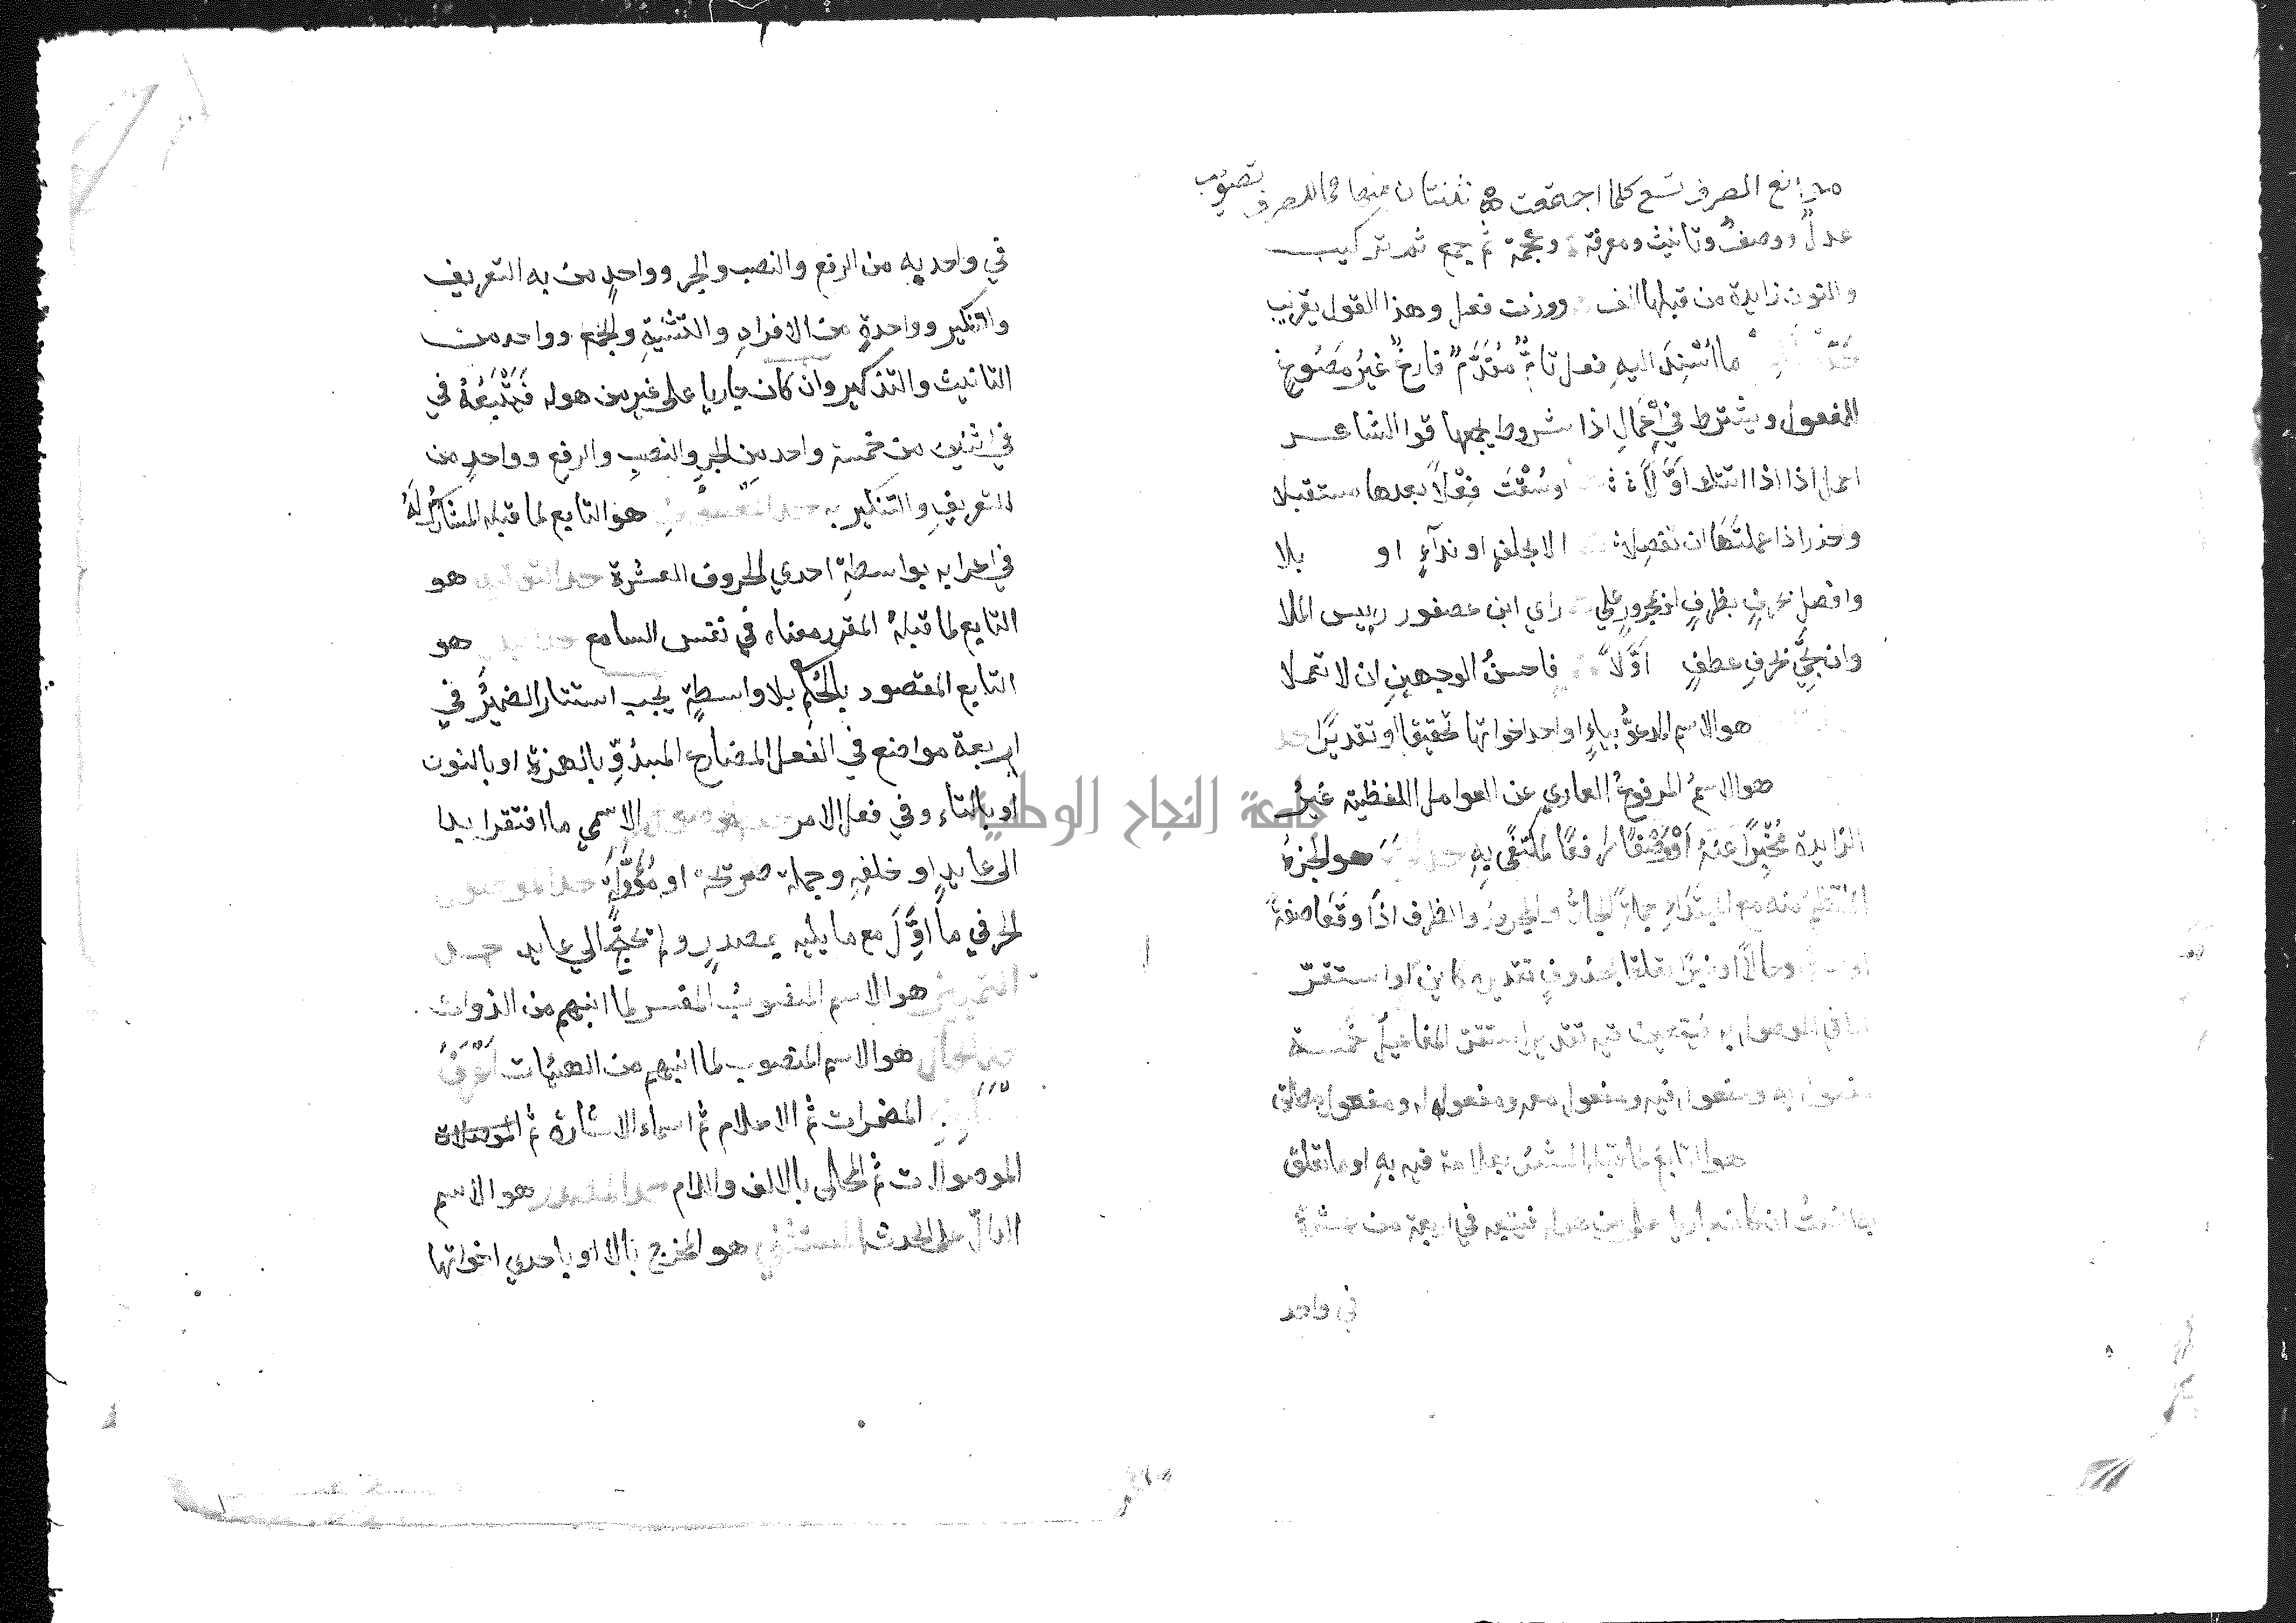 موانع الصرف تسع كلما اجتمعت ثنتان منها فما للصرف تصويب
عدل ووصف وتانيث ومعرفة وعجمة ثم جمع ثم تركيب
والنون زايدة من قبلها الف ووزن فعل وهذا القول تقريب
ما اسْنِدَ اليهِ فعل تامٌّ مُقَدَّمٌ فارغٌ غيرُ مَصُوغٍ
للمفعول ويشترط في اِعْمَالِ اذا شروط يجمعها قول الشاعر
اعمل اذا اذا اتتك اَوَّلاً وسُقْتَ فِعْلاً بعدها مستقبلا
واحذر اذا عملتَها ان تفصلا الا بحلفٍ او ندآءٍ او بلا
وافصل بظرفٍ او بمجرورٍ علي راي ابن عصفور رييس الملا
وان تجيِ بحرفِ عطفٍ اَوَّلاً فاحسنُ الوجهينِ ان لا تعملا
هو الاسم المدعوُّ بياءٍ او احد اخواتها تحقيقا او تقديرًا حد
هو الاسمُ المرفوعُ العاري عن العوامل اللفظية غيرُ
الزايدة مُخْبَرًا عنهُ اَوْ وَصْفًا رافعًا لمكتفًى بِهِ حد هو الجزءُ
المُنْتَظِمُ منه مع المبتداءِ جملةً الجارُّ والمجرورُ والظرف اذا وقعا صفةً
او وحالاً او خبرًا تعلقا بمحذوفٍ تقديره كاين او استقرّ
الا في الموصول فيتعين فيه تقدير استقرّ المفاعيلُ خمسة
مفعول به ومفعول فيه ومفعول معه ومفعول له ومفعول مطلق
هو التابعُ لما قبله المشعر بعلامة فيه بهِ او ما تعلق
به النعتُ ان كان جاريا على من هو له فيتبعه في اربعة من عشرة
في واحد
في واحد من الرفع والنصب والجر وواحدٍ من التعريف
والتنكير وواحدةٍ من الافرادِ والتثنيةِ والجمع وواحد من
التانيث والتذكير وان كان جاريا على غير من هو له فَيَتْبَعُهُ في
في اثنين من خمسة واحد من الجرِ والنصبِ والرفعِ وواحدٍ من
التعريفِ والتنكير حد المعطوف هو التابع لما قبله المشارِكُ لَهُ
في اعرابه بواسطةِ احدي الحروف العشرة حد التوكيد هو
التابع لما قبلهُ المقرر معناه في نفس السامع حد البدل هو
التابع المقصود بالحُكمِ بلا واسطةٍ يجب استتار الضميرُ في
اربعة مواضع في الفعل المضارع المبدوِّ بالهمزة او بالنون
او بالتاء وفي فعل الامر حد الموصول الاسمي ما افتقر ابدا
الى عايدٍ او خلفِهِ وجملة صريحة او مُؤَوَّلَةٍ حد الموصول
الحرفي ما اُوِّلَ مع ما يليه بمصدرٍ ولم يحتجْ الي عايد حد
التمييز هو الاسم المنصوبُ المفسر لما انبهم من الذوات
حد الحال هو الاسم المنصوب لما انبهم من الهيئات اَعْرَفُ
المضمرات ثم الاعلام ثم اسماء الاشارة ثم الموصلات
الموصولات ثم المحلى بالالف واللام حد المصدر هو الاسم
الدالّ على الحدث المستثنى هو المخرج بالا او باحدي اخواتها
جامعة النجاح الوطنية